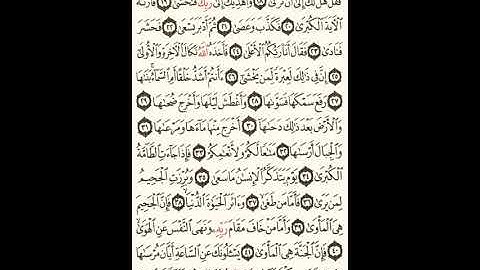 فَقُلْ هَل لَّكَ إِلَىٰٓ أَن تَزَكَّىٰ ١٨ وَأَهْدِيَكَ إِلَىٰ رَبِّكَ فَتَخْشَىٰ ١٩ فَأَرَىٰهُ
ٱلْأٓيَةَ ٱلْكُبْرَىٰ ٢٠ فَكَذَّبَ وَعَصَىٰ ٢١ ثُمَّ أَدْبَرَ يَسْعَىٰ ٢٢ فَحَشَرَ
فَنَادَىٰ ٢٣ فَقَالَ أَنَا۠ رَبُّكُمُ ٱلْأَعْلَىٰ ٢٤ فَأَخَذَهُ ٱللَّهُ نَكَالَ ٱلْأٓخِرَةِ وَٱلْأُولَىٰٓ
٢٥ إِنَّ فِي ذَٰلِكَ لَعِبْرَةً لِّمَن يَخْشَىٰٓ ٢٦ ءَأَنتُمْ أَشَدُّ خَلْقًا أَمِ ٱلسَّمَآءُ ۚ بَنَىٰهَا
٢٧ رَفَعَ سَمْكَهَا فَسَوَّىٰهَا ٢٨ وَأَغْطَشَ لَيْلَهَا وَأَخْرَجَ ضُحَىٰهَا ٢٩
وَٱلْأَرْضَ بَعْدَ ذَٰلِكَ دَحَىٰهَآ ٣٠ أَخْرَجَ مِنْهَا مَآءَهَا وَمَرْعَىٰهَا ٣١
وَٱلْجِبَالَ أَرْسَىٰهَا ٣٢ مَتَٰعًا لَّكُمْ وَلِأَنْعَٰمِكُمْ ٣٣ فَإِذَا جَآءَتِ ٱلطَّآمَّةُ
ٱلْكُبْرَىٰ ٣٤ يَوْمَ يَتَذَكَّرُ ٱلْإِنسَٰنُ مَا سَعَىٰ ٣٥ وَبُرِّزَتِ ٱلْجَحِيمُ
لِمَن يَرَىٰ ٣٦ فَأَمَّا مَن طَغَىٰ ٣٧ وَءَاثَرَ ٱلْحَيَوٰةَ ٱلدُّنْيَا ٣٨ فَإِنَّ ٱلْجَحِيمَ
هِيَ ٱلْمَأْوَىٰ ٣٩ وَأَمَّا مَنْ خَافَ مَقَامَ رَبِّهِۦ وَنَهَى ٱلنَّفْسَ عَنِ ٱلْهَوَىٰ
٤٠ فَإِنَّ ٱلْجَنَّةَ هِيَ ٱلْمَأْوَىٰ ٤١ يَسْـَٔلُونَكَ عَنِ ٱلسَّاعَةِ أَيَّانَ مُرْسَىٰهَا